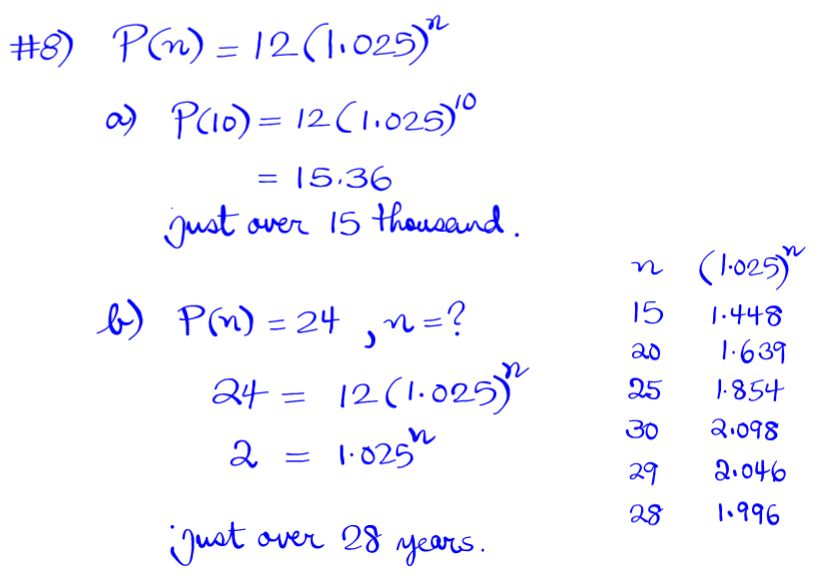 #8) P(n) = 12(1.025)ⁿ
a) P(10) = 12(1.025)¹⁰
= 15.36
just over 15 thousand.
b) P(n) = 24 , n = ?
24 = 12(1.025)ⁿ
2 = 1.025ⁿ
just over 28 years.
n (1.025)ⁿ
15 1.448
20 1.639
25 1.854
30 2.098
29 2.046
28 1.996